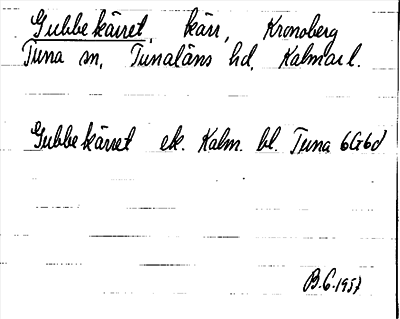 Gubbekärret, kärr, Kronoberg
Tuna sn, Tunaläns hd, Kalmar l.
Gubbekärret ek. Kalm. bl. Tuna 6G6d
B.G. 1957